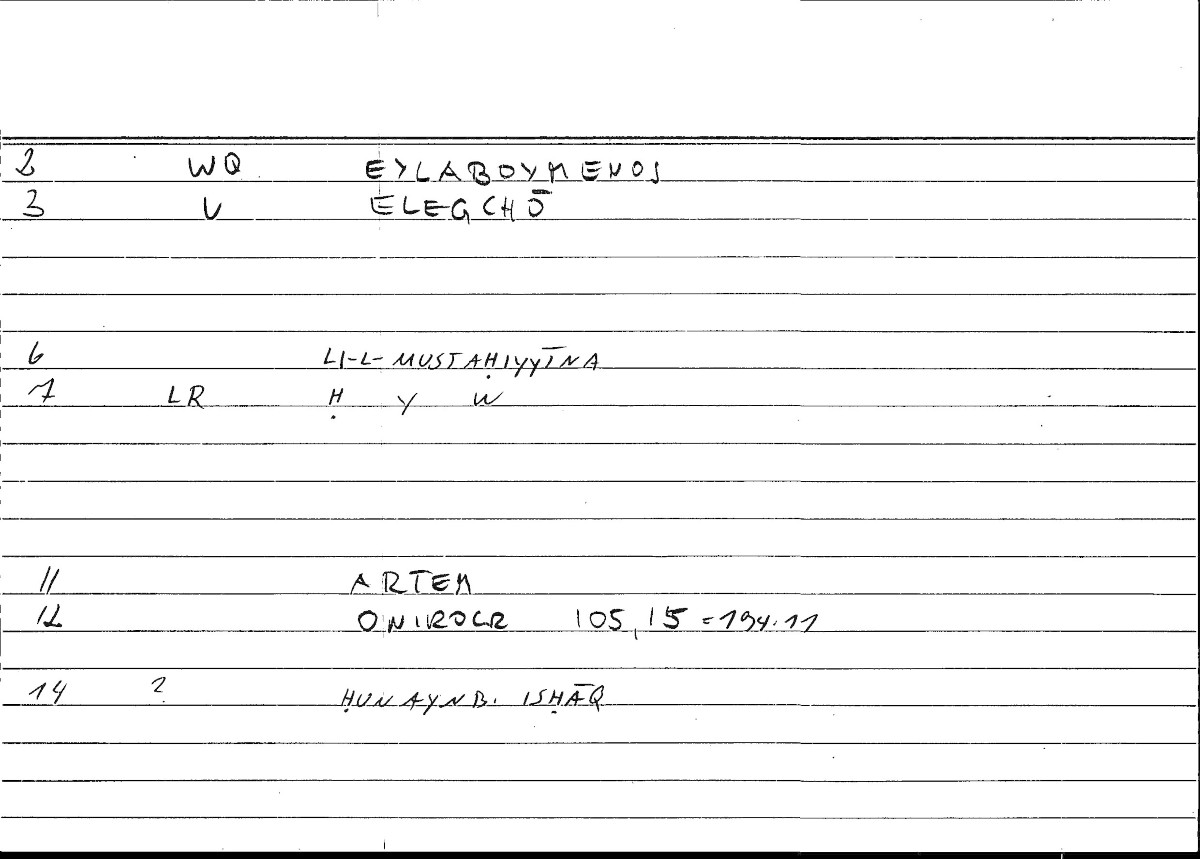 2 WQ EYLABOYMENOS
3 V ELEGCHŌ
6 LI-L-MUSTAḤIYYĪNA
7 LR Ḥ Y W
11 ARTEM
12 ONIROCR 105,15=194.11
14 ? ḤUNAYN B. ISḤĀQ